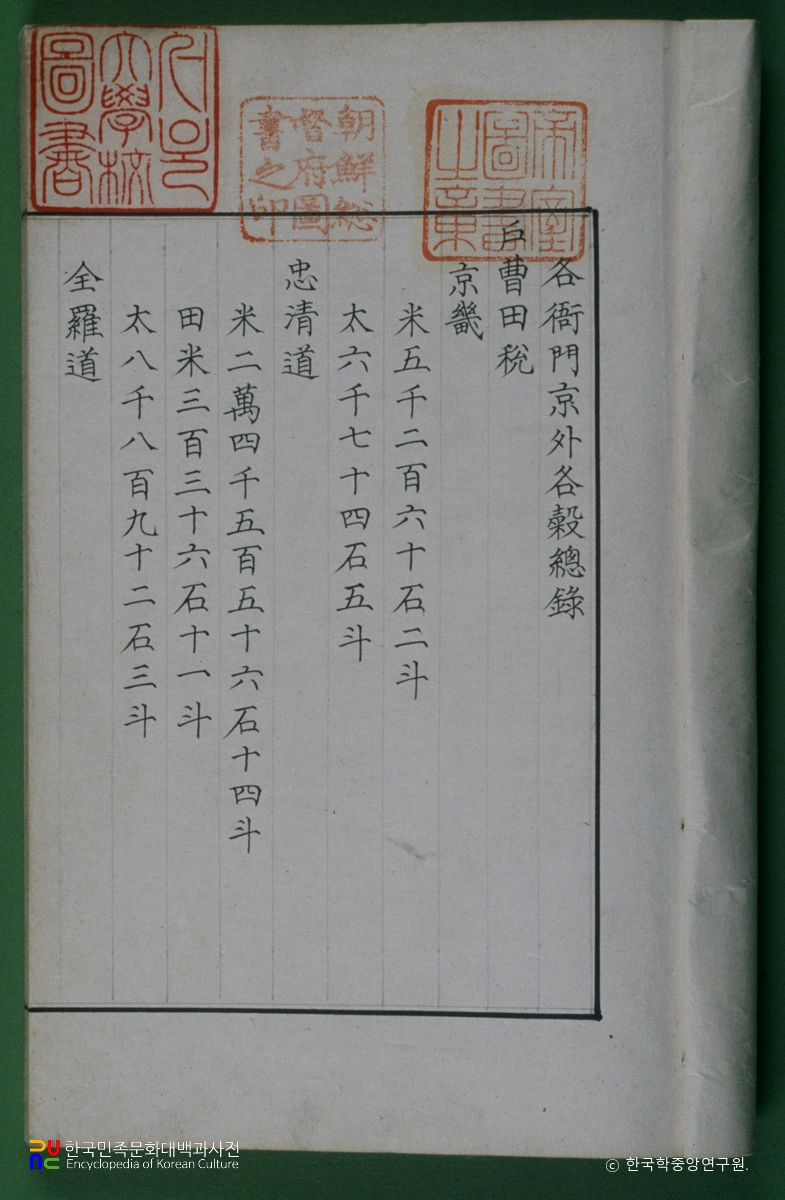 各衙門京外各穀總錄
戶曹田稅
京畿
米五千二百六十石二斗
太六千七十四石五斗
忠清道
米二萬四千五百五十六石十四斗
田米三百三十六石十一斗
太八千八百九十二石三斗
全羅道
帝室圖書之章
朝鮮總督府圖書之印
서울大學校圖書
한국민족문화대백과사전
Encyclopedia of Korean Culture
© 한국학중앙연구원.